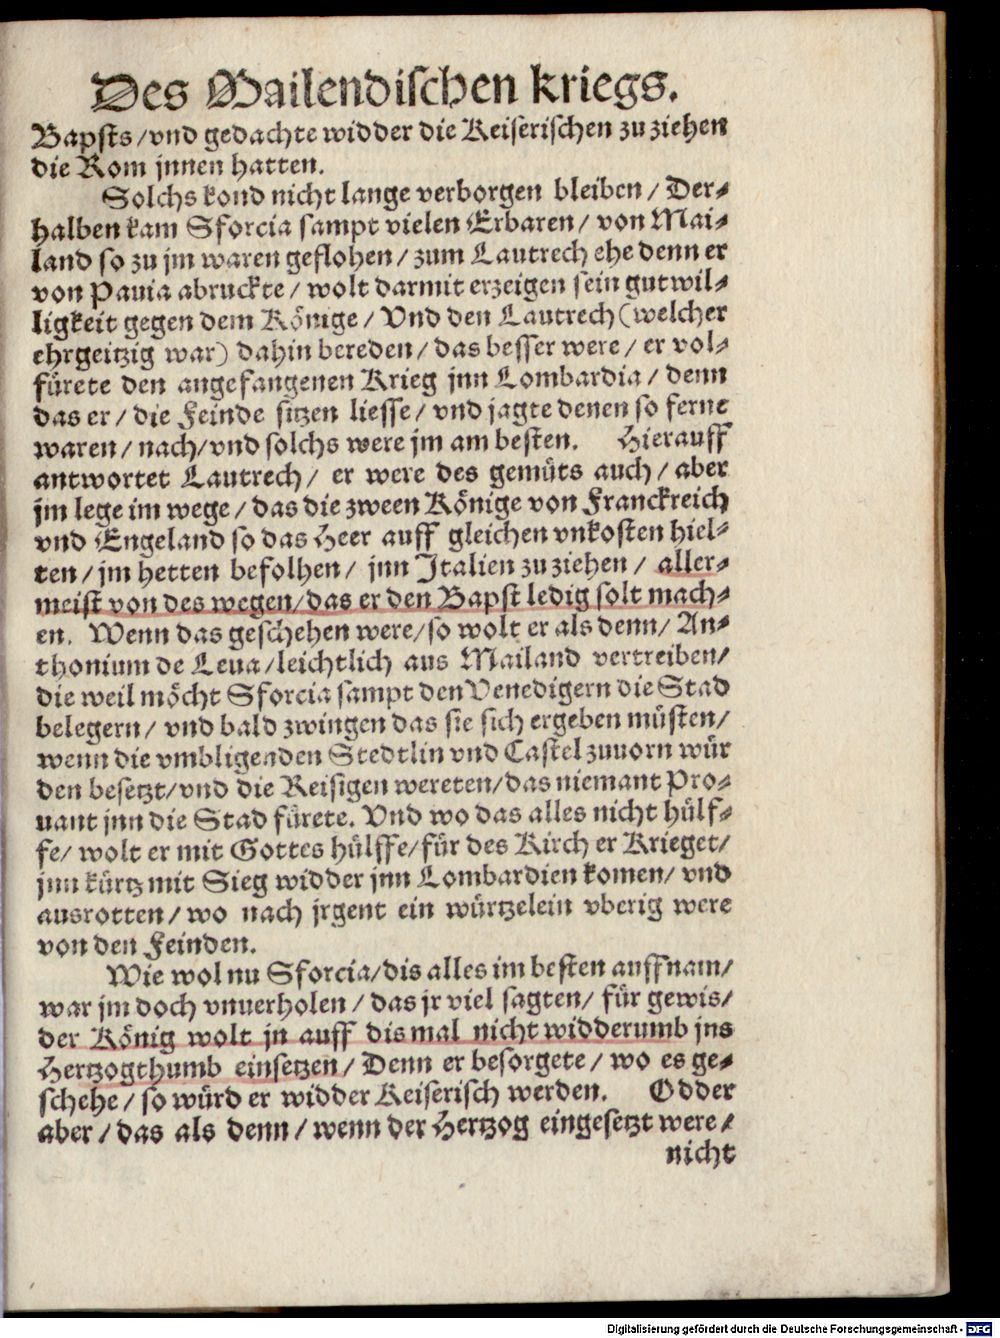 Des Mailendischen kriegs.
Bapsts/vnd gedachte widder die Keiserischen zu ziehen
die Rom jnnen hatten.
Solchs kond nicht lange verborgen bleiben/ Der-
halben kam Sforcia sampt vielen Erbaren/ von Mai-
land so zu jm waren geflohen/ zum Lautrech ehe denn er
von Pauia abruckte/ wolt darmit erzeigen sein gutwil-
ligkeit gegen dem Könige/ Vnd den Lautrech (welcher
ehrgeitzig war) dahin bereden/ das besser were/ er vol-
fürete den angefangenen Krieg jnn Lombardia/ denn
das er/ die Feinde sitzen liesse/ vnd jagte denen so ferne
waren/ nach/vnd solchs were jm am besten. Hierauff
antwortet Lautrech/ er were des gemüts auch/ aber
jm lege im wege/ das die zween Könige von Franckreich
vnd Engeland so das Heer auff gleichen vnkosten hiel-
ten/ jm hetten befolhen/ jnn Italien zu ziehen/ aller-
meist von des wegen/das er den Bapst ledig solt mach-
en. Wenn das geschehen were/so wolt er als denn/ An-
thonium de Leua/leichtlich aus Mailand vertreiben/
die weil möcht Sforcia sampt den Venedigern die Stad
belegern/ vnd bald zwingen das sie sich ergeben müsten/
wenn die vmbligenden Stedtlin vnd Castel zuuorn wür
den besetzt/vnd die Reisigen wereten/das niemant Pro-
uant jnn die Stad fürete. Vnd wo das alles nicht hülf-
fe/ wolt er mit Gottes hülffe/für des Kirch er Krieget/
jnn kürtz mit Sieg widder jnn Lombardien komen/ vnd
ausrotten/ wo nach jrgent ein würtzelein vberig were
von den Feinden.
Wie wol nu Sforcia/dis alles im besten auffnam/
war jm doch vnuerholen/ das jr viel sagten/ für gewis/
der König wolt jn auff dis mal nicht widderumb jns
Hertzogthumb einsetzen/ Denn er besorgete/ wo es ge-
schehe/ so würd er widder Keiserisch werden. Odder
aber/ das als denn/ wenn der Hertzog eingesetzt were/
nicht
Digitalisierung gefördert durch die Deutsche Forschungsgemeinschaft - DFG